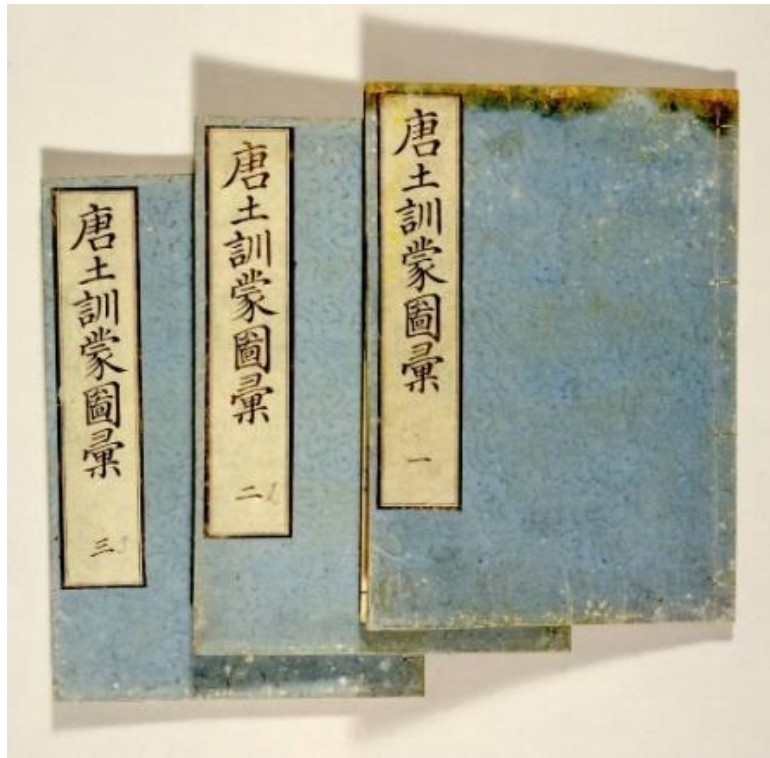 唐土訓蒙圖彙
一
唐土訓蒙圖彙
二
唐土訓蒙圖彙
三